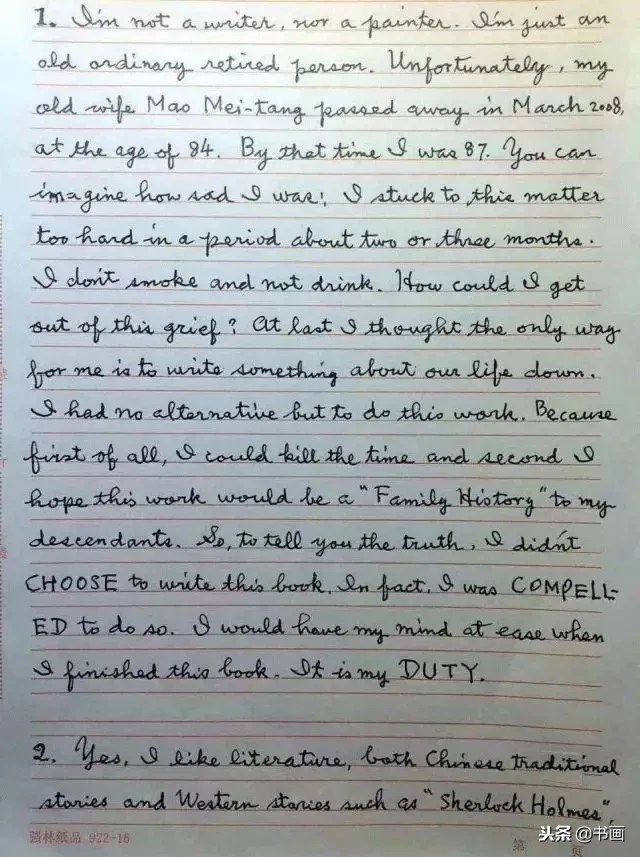 1. I'm not a writer, nor a painter. I'm just an
old ordinary retired person. Unfortunately, my
old wife Mao Mei-tang passed away in March 2008,
at the age of 84. By that time I was 87. You can
imagine how sad I was! I stuck to this matter
too hard in a period about two or three months.
I don't smoke and not drink. How could I get
out of this grief? At last I thought the only way
for me is to write something about our life down.
I had no alternative but to do this work. Because
first of all, I could kill the time and second I
hope this work would be a "Family History" to my
descendants. So, to tell you the truth, I didn't
CHOOSE to write this book. In fact, I was COMPELL-
ED to do so. I would have my mind at ease when
I finished this book. It is my DUTY.
2. Yes, I like literature, both Chinese traditional
stories and Western stories such as "Sherlock Holmes",
强林紙品 922-16
第 页
头条 @书画